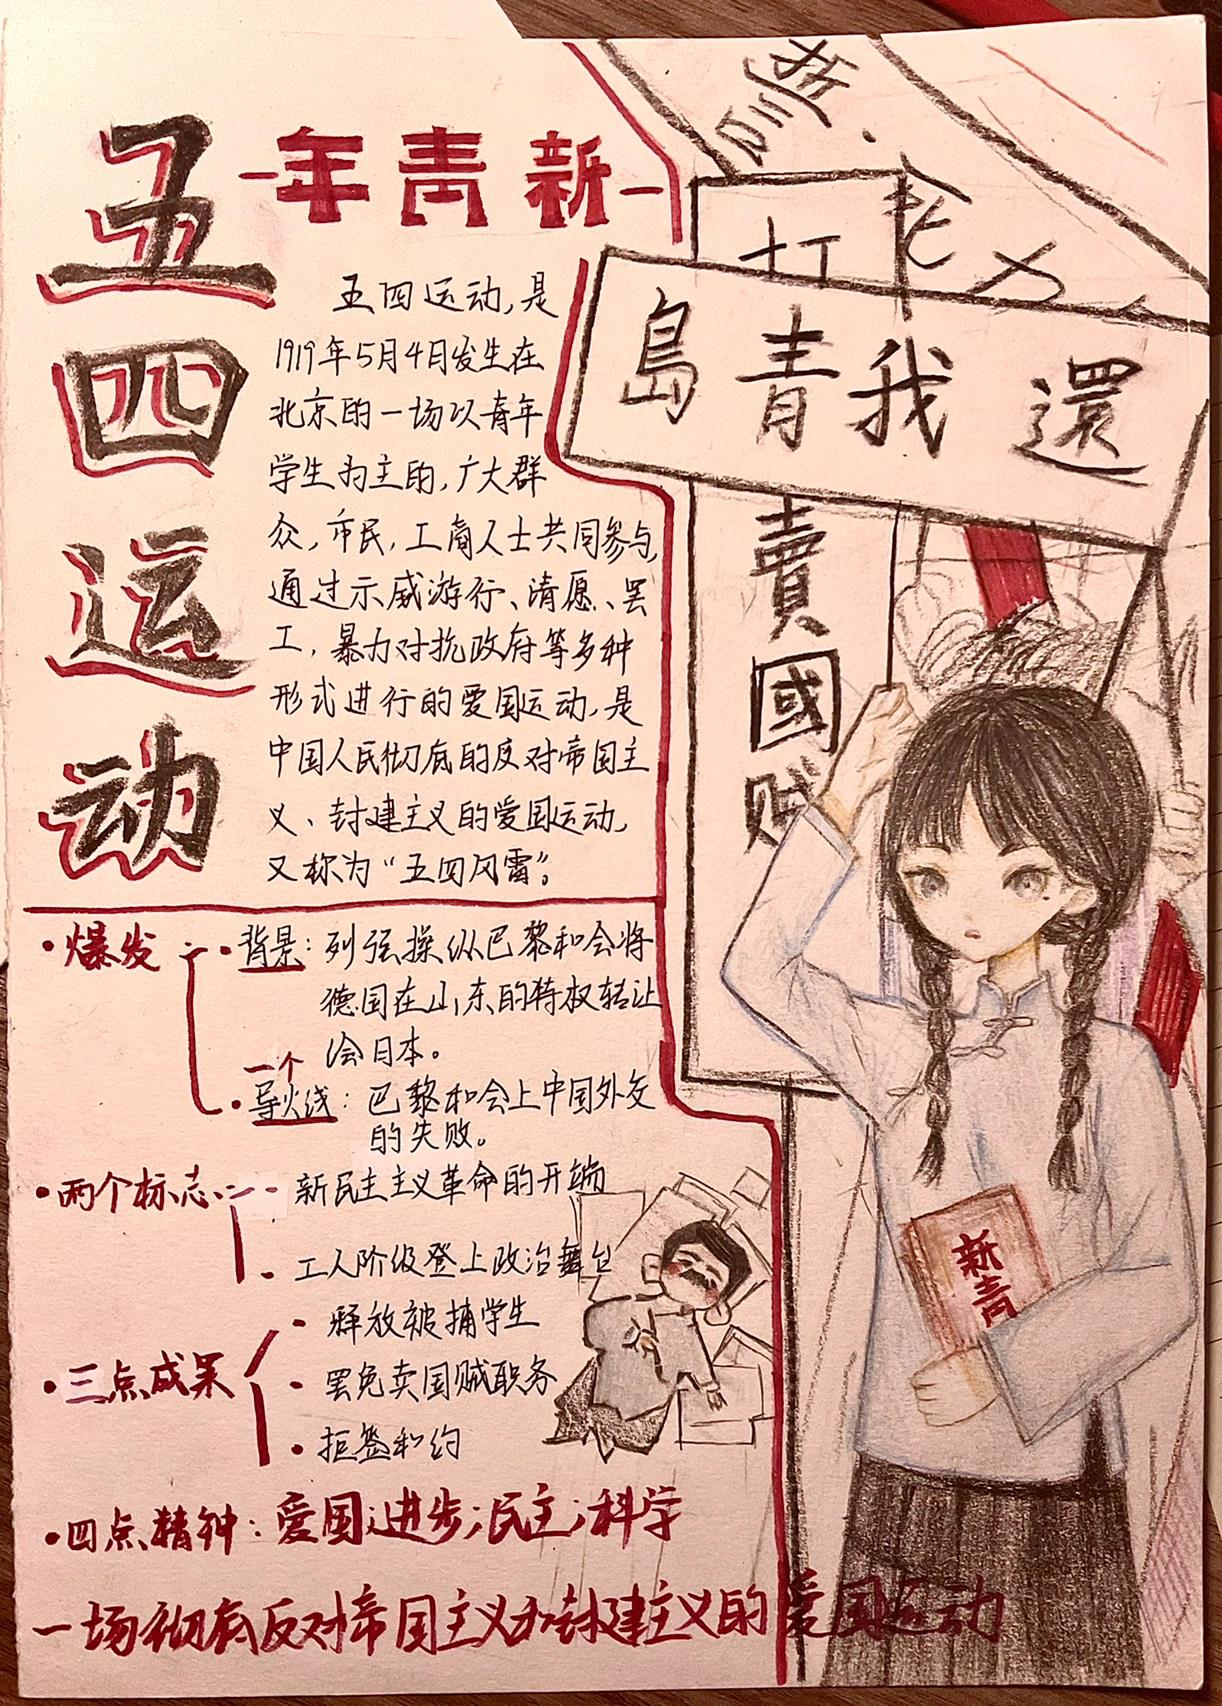 五四运动
年青新
五四运动,是
1919年5月4日发生在
北京的一场以青年
学生为主的,广大群
众,市民,工商人士共同参与,
通过示威游行、请愿、罢
工,暴力对抗政府等多种
形式进行的爱国运动,是
中国人民彻底的反对帝国主
义、封建主义的爱国运动,
又称为“五四风雷”。
·爆发
·背景:列强操纵巴黎和会将
德国在山东的特权转让
给日本。
一个
·导火线:巴黎和会上中国外交
的失败。
·两个标志
·新民主主义革命的开端
·工人阶级登上政治舞台
·三点成果
·释放被捕学生
·罢免卖国贼职务
·拒签和约
·四点精神:爱国;进步;民主;科学
一场彻底反对帝国主义和封建主义的爱国运动
打
島青我還
賣國贼
新青